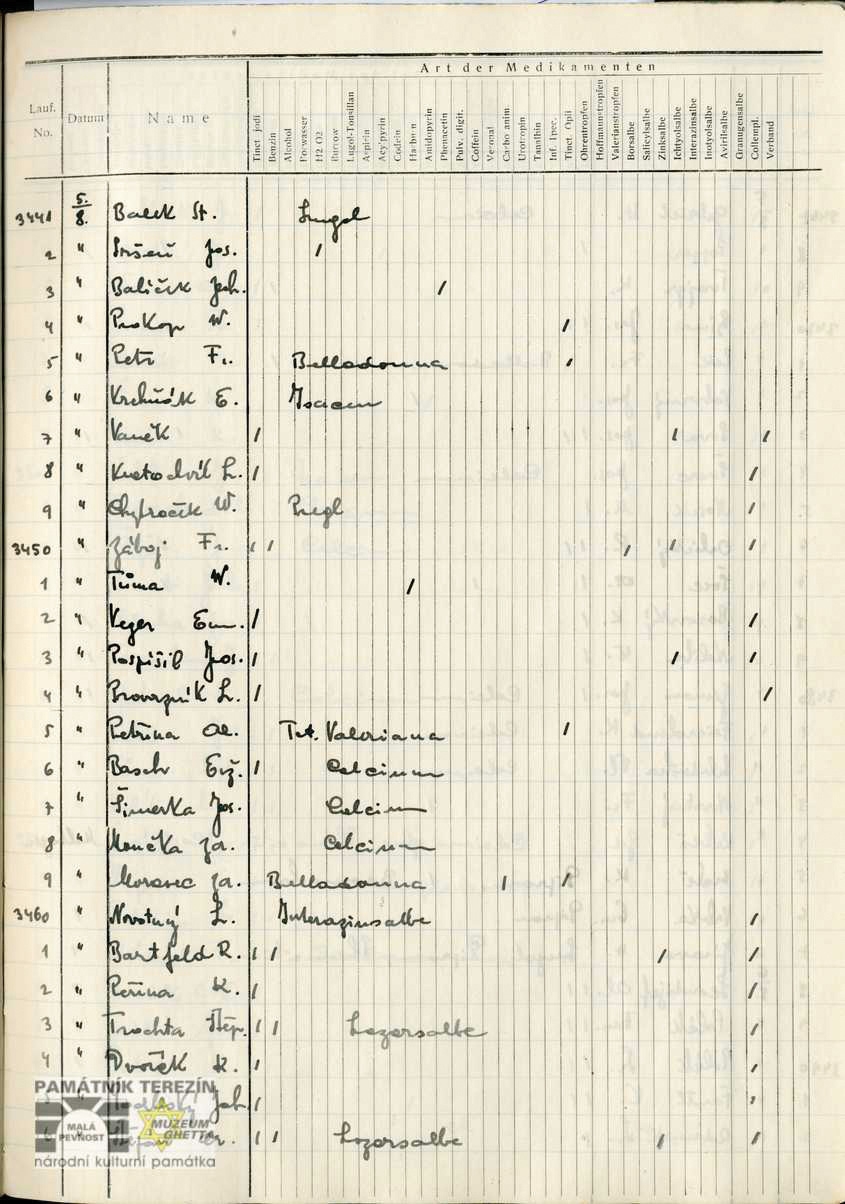 Art der Medikamenten
Lauf. No. Datum Name Tinct jodi Benzin Alcohol Borwasser H2 O2 Burrow Lugol-Tonsillan Aspirin Acypyrin Codein Amidopyrin Phenacetin Pulv. digit. Coffein Veronal Carbo anim. Urotropin Tannalbin Inf. Ipec. Tinct Opii Ohrentropfen Hoffmannstropfen Valerianstropfen Borsalbe Salicylsalbe Zinksalbe Ichtyolsalbe Interazinsalbe Inotyolsalbe Avirilsalbe Granugensalbe Collempl. Verband
3441 5. 8. Balek St. Lugol
2 " Jos. /
3 " Balíček Joh. /
4 " Prokop W. /
5 " Petr Fr. Belladonna /
6 " Krchňák E.
7 " Vaněk / / /
8 " L. / /
9 " W. Pregl
3450 " Záboj Fr. / / / / /
1 " Tůma W. /
2 " Veger Em. / /
3 " Pospíšil Jos. / / /
4 " Provazník L. / /
5 " Petřina Ol. Tct. Valeriana /
6 " Basch Evž. / Calcium
7 " Šimerka Jos. Calcium
8 " Moučka Jar. Calcium
9 " Moravec Jar. Belladonna / /
3460 " Novotný L. Interazinsalbe /
1 " Bartfeld R. / / / /
2 " Peřina K. / /
3 " Trochta Štěp. / / Lazarsalbe /
4 " Dvořák K. / /
" Joh. / /
6 " / / Lazarsalbe / /
PAMÁTNÍK TEREZÍN
MALÁ PEVNOST MUZEUM GHETTA
národní kulturní památka